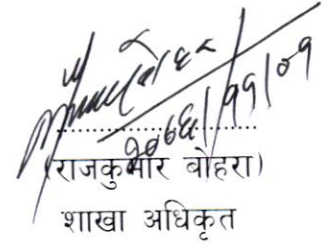 २०७६/११/०१
(राजकुमार बोहरा)
शाखा अधिकृत